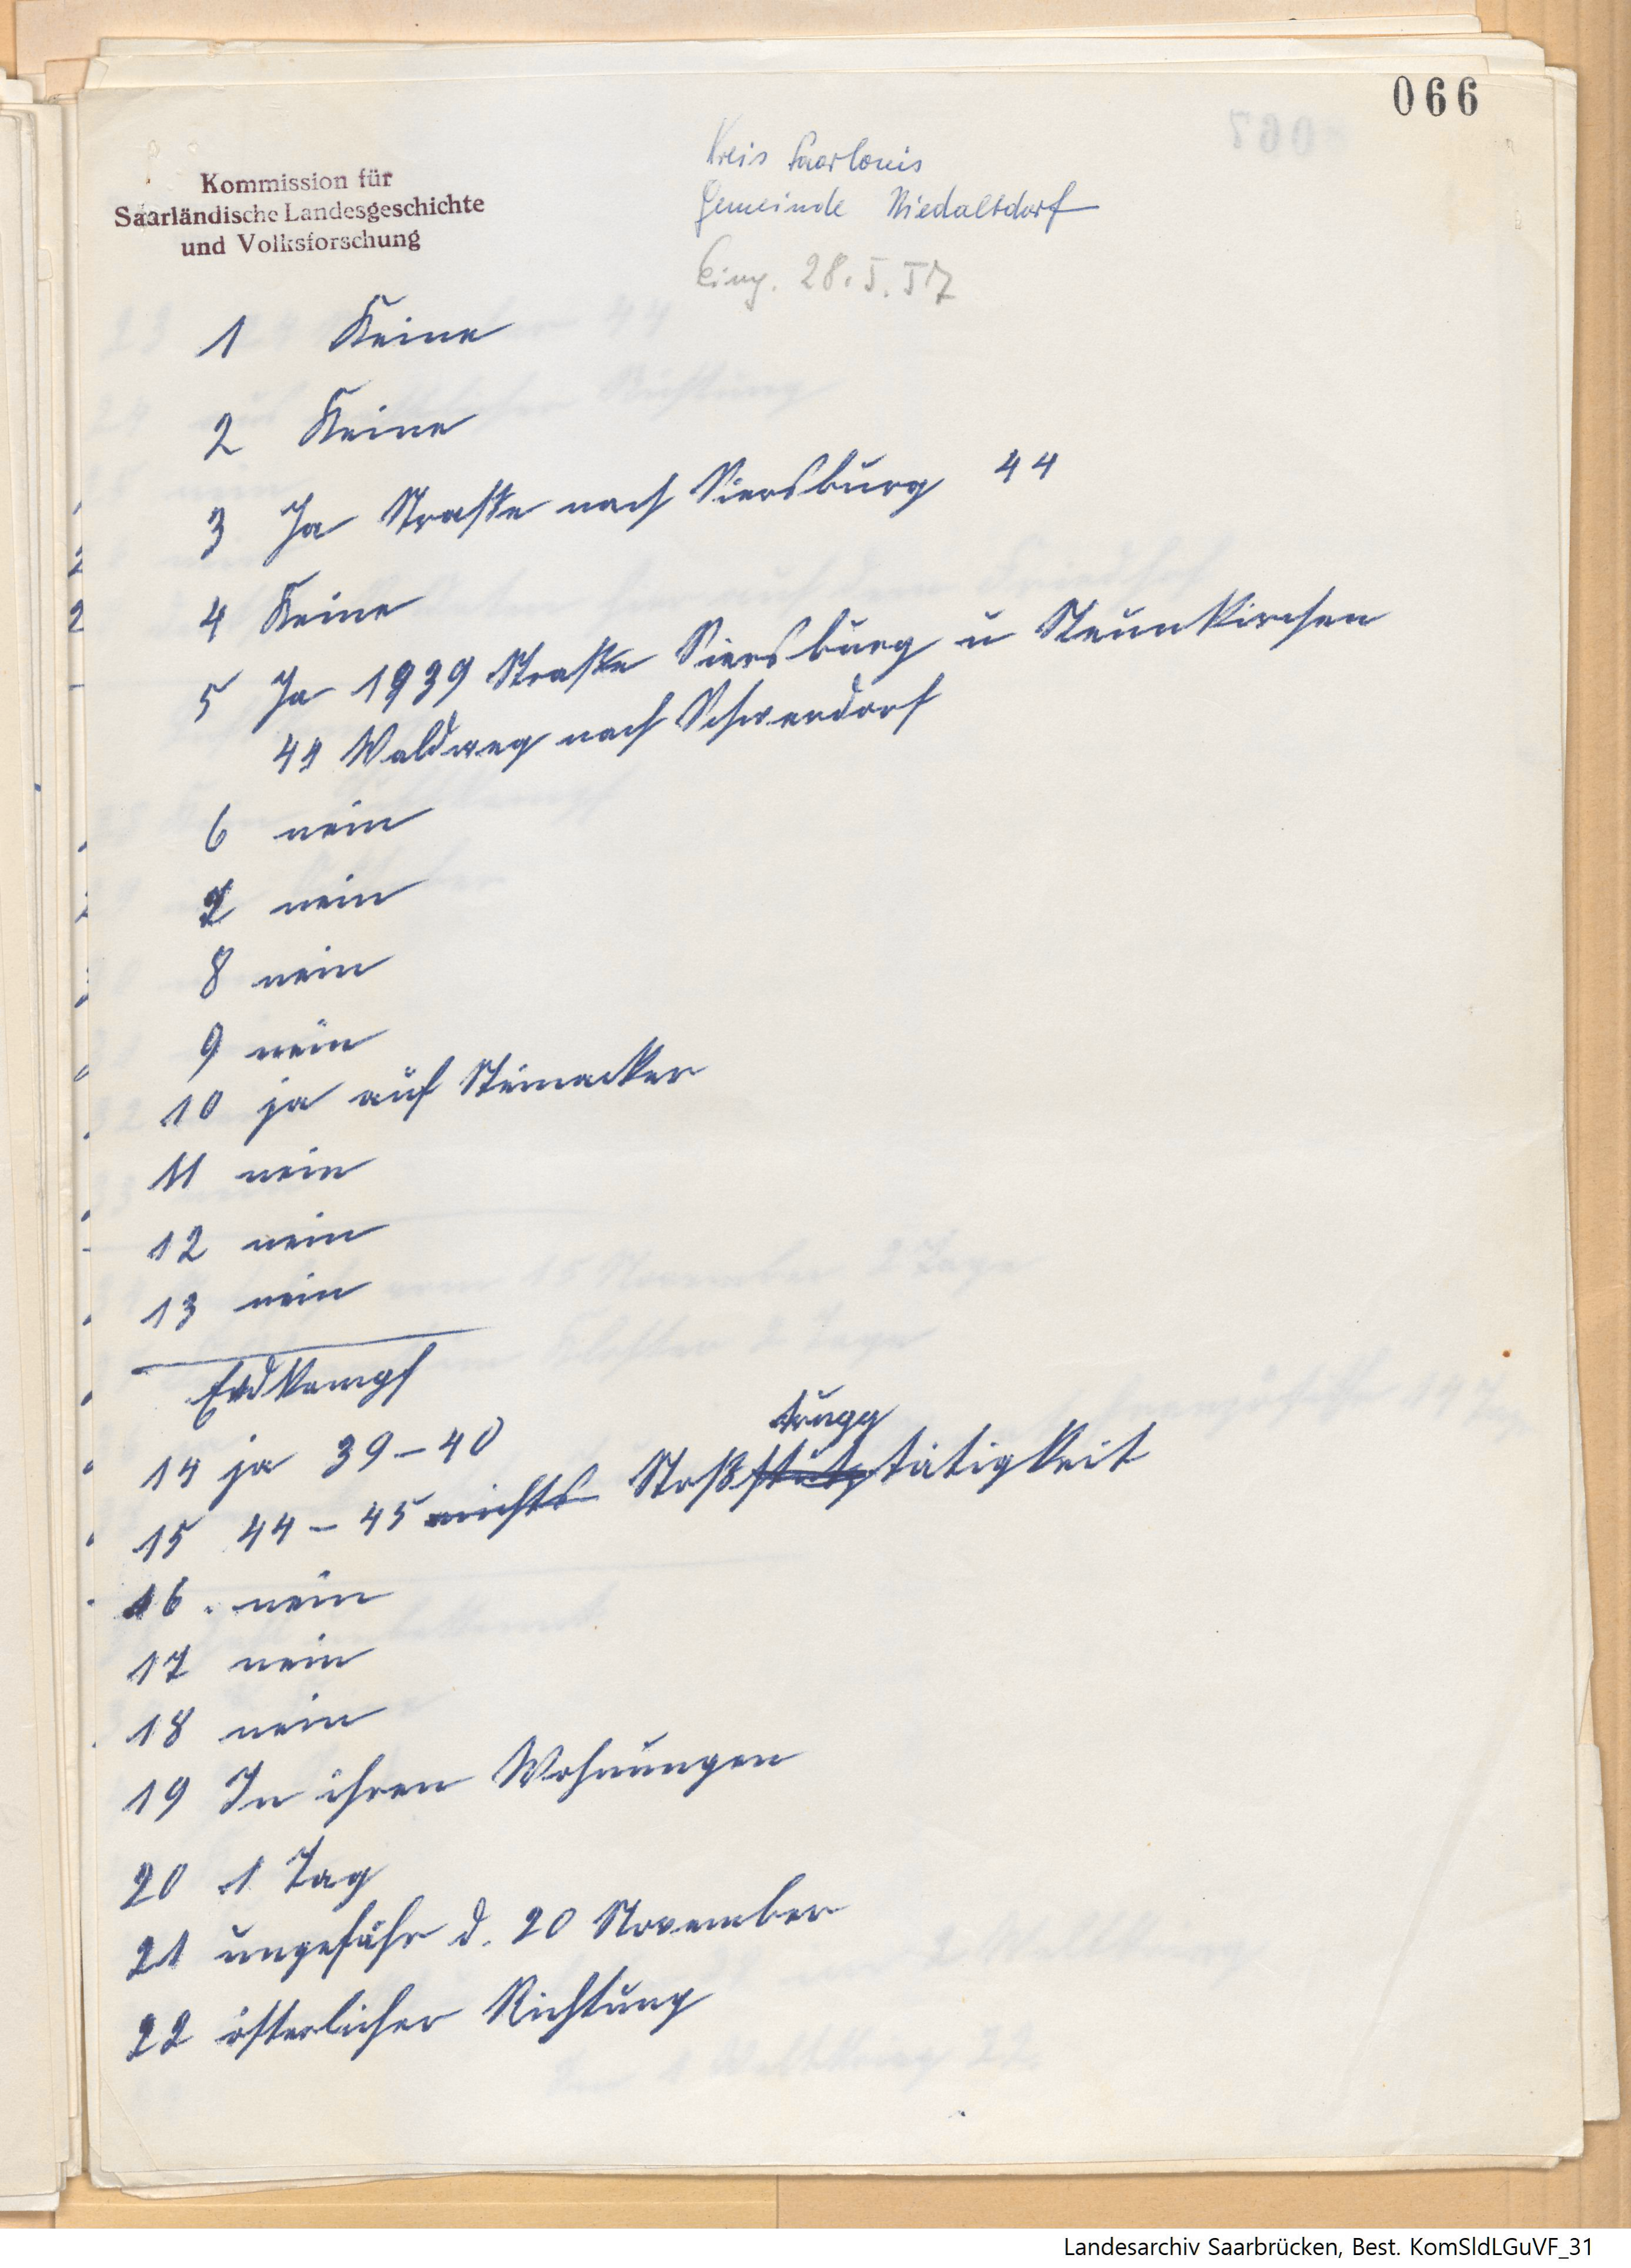 066
Kommission für
Saarländische Landesgeschichte
und Volksforschung
Kreis Saarlouis
Gemeinde Niedaltdorf
Eing. 28. I. 57
1 Keine
2 Keine
3 Ja Straße nach Siersburg 44
4 Keine
5 Ja 1939 Straße Siersburg u Neunkirchen
44 Waldweg nach Schwerdorf
6 nein
7 nein
8 nein
9 nein
10 ja auf Steinacker
11 nein
12 nein
13 nein
Erdkampf
14 ja 39-40
trupp
15 44-45 nichts Stoßtätigkeit
16. nein
17 nein
18 nein
19 In ihren Wohnungen
20 1 Tag
21 ungefähr d. 20 November
22 österlicher Richtung
Landesarchiv Saarbrücken, Best. KomSldLGuVF_31